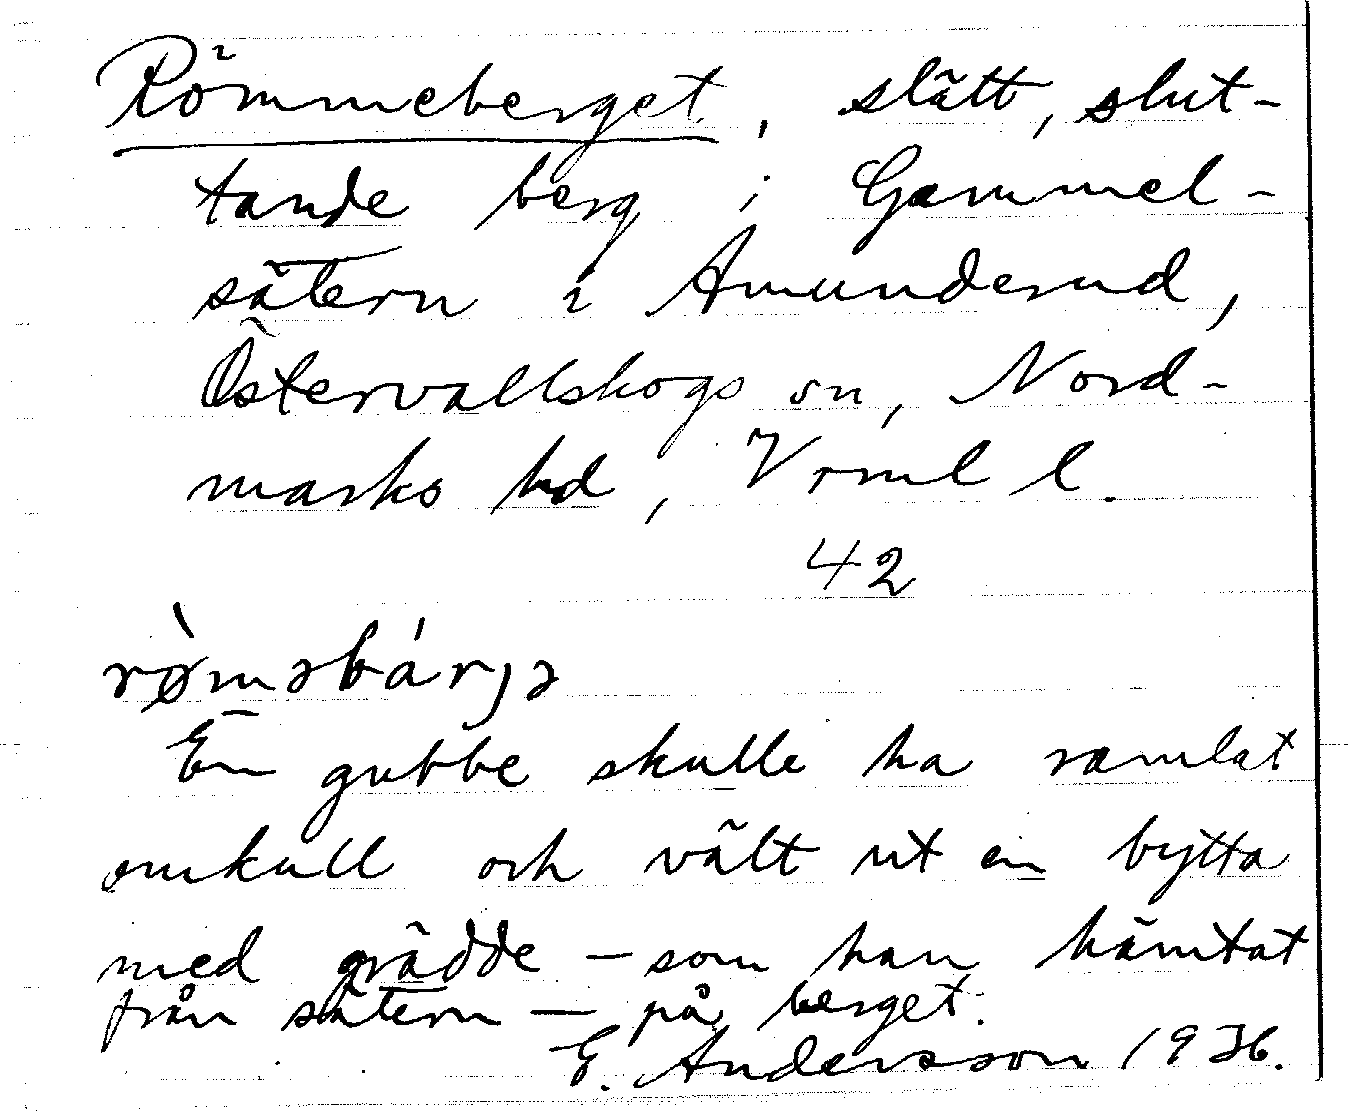 Römmeberget, slätt, slut-
tande berg i Gammel-
sätern i Amunderud,
Östervallskogs sn, Nord-
marks hd, Vrml l.
42
rø̀məbárjə
En gubbe skulle ha ramlat
omkull och vält ut en bytta
med grädde – som han hämtat
från sätern – på berget.
E. Andersson 1936.